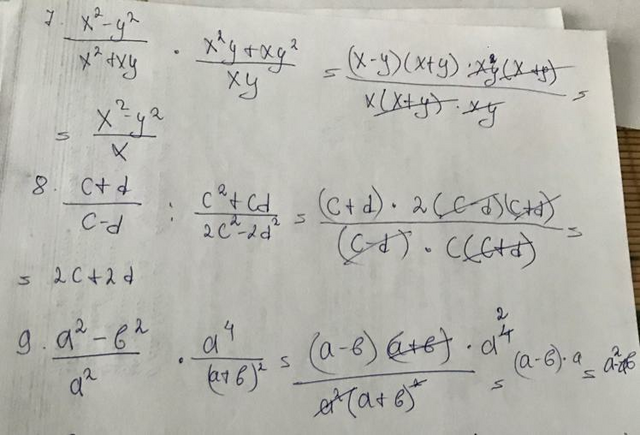 7. (x²-y²)/(x²+xy) · (x²y+xy²)/(xy) = ((x-y)(x+y)·xy(x+y))/(x(x+y)·xy) =
= (x²-y²)/x
8. (c+d)/(c-d) : (c²+cd)/(2c²-2d²) = ((c+d)·2(c-d)(c+d))/((c-d)·c(c+d)) =
= 2c+2d
9. (a²-b²)/a² · a⁴/(a+b)² = ((a-b)(a+b)·a⁴)/(a²(a+b)²) = (a-b)·a =